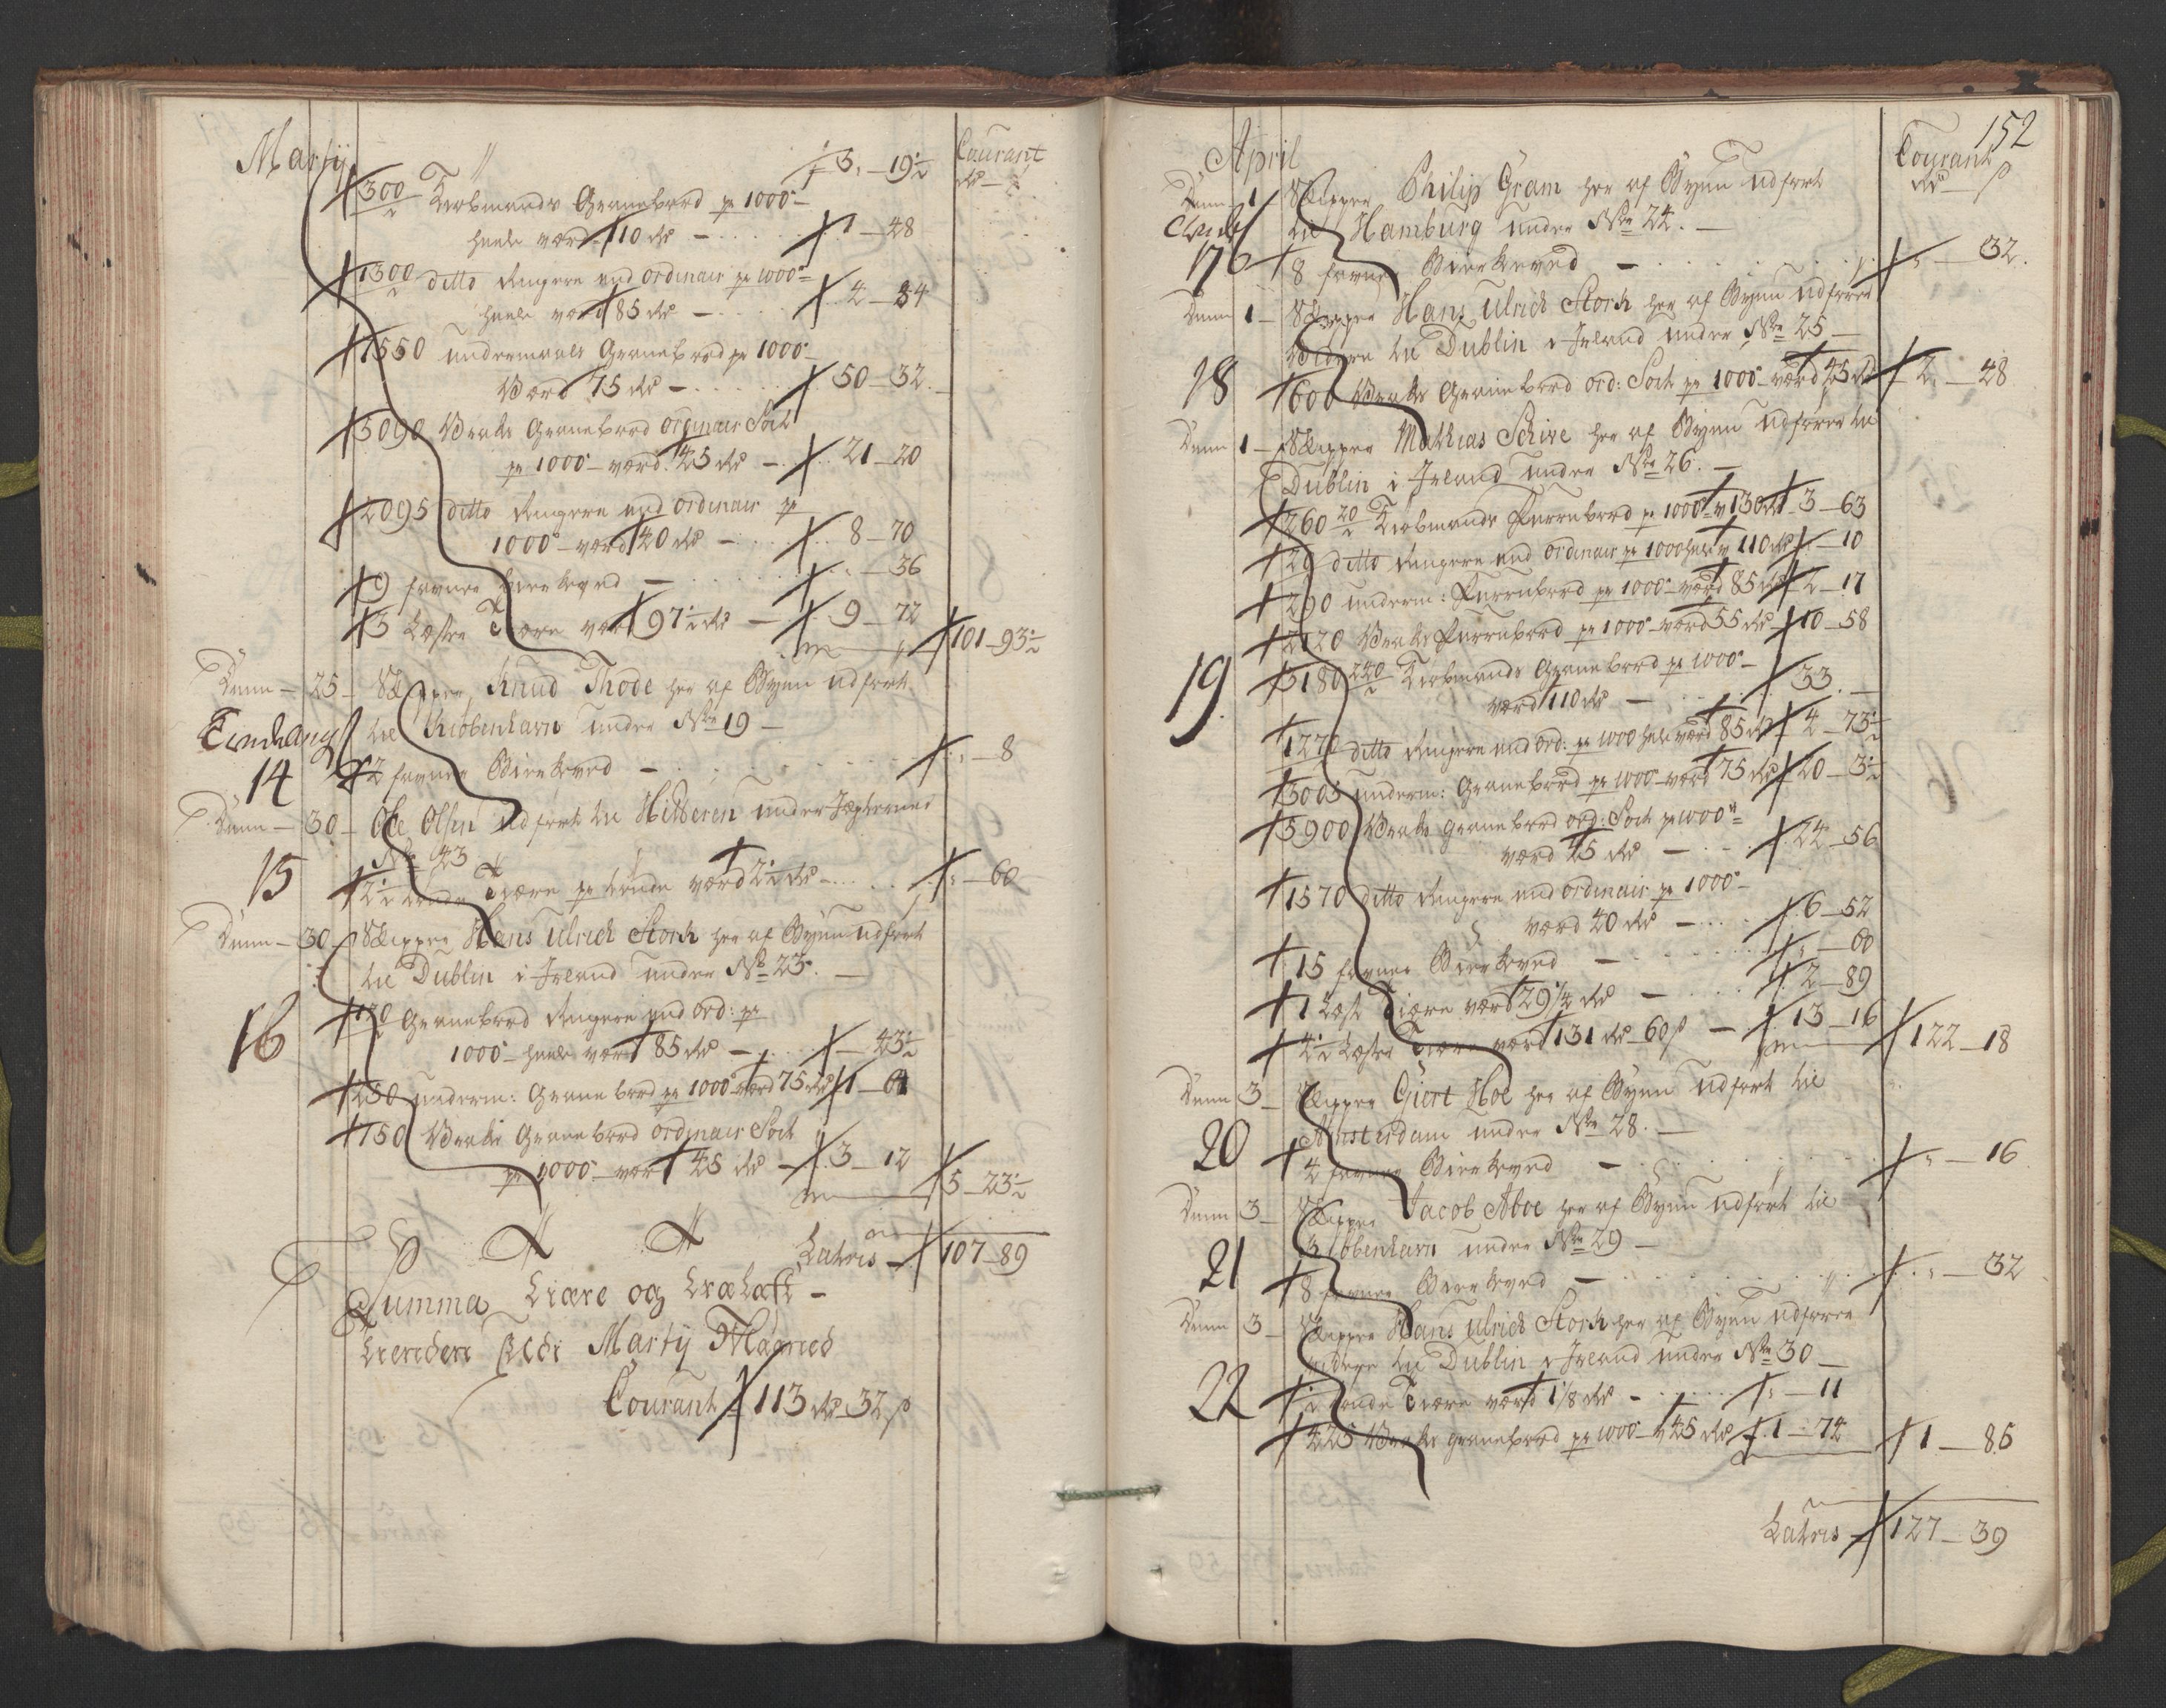 Martÿ " 3 „ — 19½ Courant
rdr — ß
300/2 Kiøbmands Granebord pr 1000de
heele værd 110 rdr — 1 — 48
1300/2 ditto Ringere end ordinair pr 1000de
heele værd 85 rdr — 2 — 34
7550 undermaals Granebord pr 1000de
Værd 75 rdr — 50 — 32
5090 Vrags Granebord ordinair Sort
pr 1000de værd 45 rdr — 21 — 20
2095 ditto Ringere end ordinair pr
1000de værd 40 rdr — 8 — 70
9 favner Birkeved — „ — 36
3 Læster Tiære værd 97½ rdr — 9 — 72
101 — 93½
Denn — 25 — Skipper Knud Thode her af Byen udført
til Kiøbenhavn under No 19 —
14 2 favner Birkeved — „ — 8
Denn — 30 — Ole Olsen udført til Hitteren under
No 43
15 2½ tønde Tiære pr tønde værd 2½ rdr — „ — 60
Denn — 30 — Skipper Hans Ulrich Stork her af Byen udført
til Dublin i Irland under No 23. —
16 170/2 Granebord Ringere end ord: pr
1000de heele værd 85 rdr — „ — 43½
250 underm: Granebord pr 1000de værd 75 rdr 1 — 64
750 Vrags Granebord ordinair Sort
pr 1000de værd 45 rdr — 3 — 12
5 — 23½
Lateris — 107 — 89
Summa Tiære og Træ Last
Tienden Martÿ Maaned
Courant 113 rdr 32 ß
152
April Courant
rdr ß
Denn 1 Skipper Philip Gram her af Byen udført
til Hamburg under No 24. —
17 8 favner Birkeved — „ — 32.
Denn 1 — Skipper Hans Ulrich Stork her af Byen udfører
Videre til Dublin i Irland under No 25 —
18 600 Vrags Granebord ord: Sort pr 1000de værd 45 rdr 2 — 48
Denn 1 — Skipper Mathias Schive her af Byen udfører til
Dublin i Irland under No 26. —
260 20/2 Kiøbmands Furrebord pr 1000de v 130 rdr 3 — 63
20 ditto Ringere end ordinair pr 1000 hele v 110 rdr „ — 10
290 underm: Furrebord pr 1000de værd 85 rdr 2 — 17
2120 Vrags Furrebord pr 1000de værd 55 rdr 10 — 58
19 3180 240/2 Kiøbmands Granebord pr 1000de
værd 110 rdr — 33 —
1272 ditto Ringere end ord: pr 1000 hele værd 85 rdr 4 — 73½
3005 underm: Granebord pr 1000de værd 75 rdr 20 — 3½
5900 Vrags granebord ord: Sort pr 1000de
værd 45 rdr — 24 — 56
1570 ditto Ringere end ordinair pr 1000de
værd 40 rdr — 6 — 52
15 favner Birkeved — „ — 60
1 Læst Tiære værd 29¼ rdr — 2 — 89
4½ Læster Tiære værd 131 rdr 60 ß — 13 — 16 122 — 18
Denn 3 — Skipper Giert Hoe her af Byen udført til
Amsterdam under No 28. —
20 4 favner Birkeved — „ — 16
Denn 3 — Skipper Jacob Aboe her af Byen udført til
Kiøbenhavn under No 29 —
21 8 favner Birkeved — „ — 32
Denn 3 — Skipper Hans Ulrich Stork her af Byen udfører
videre til Dublin i Irland under No 30 —
22 ½ tønde Tiære værd 1⅛ rdr — „ — 11
425 Vrags granebord pr 1000de v 45 rdr 1 — 74 1 — 85
Lateris — 127 — 39